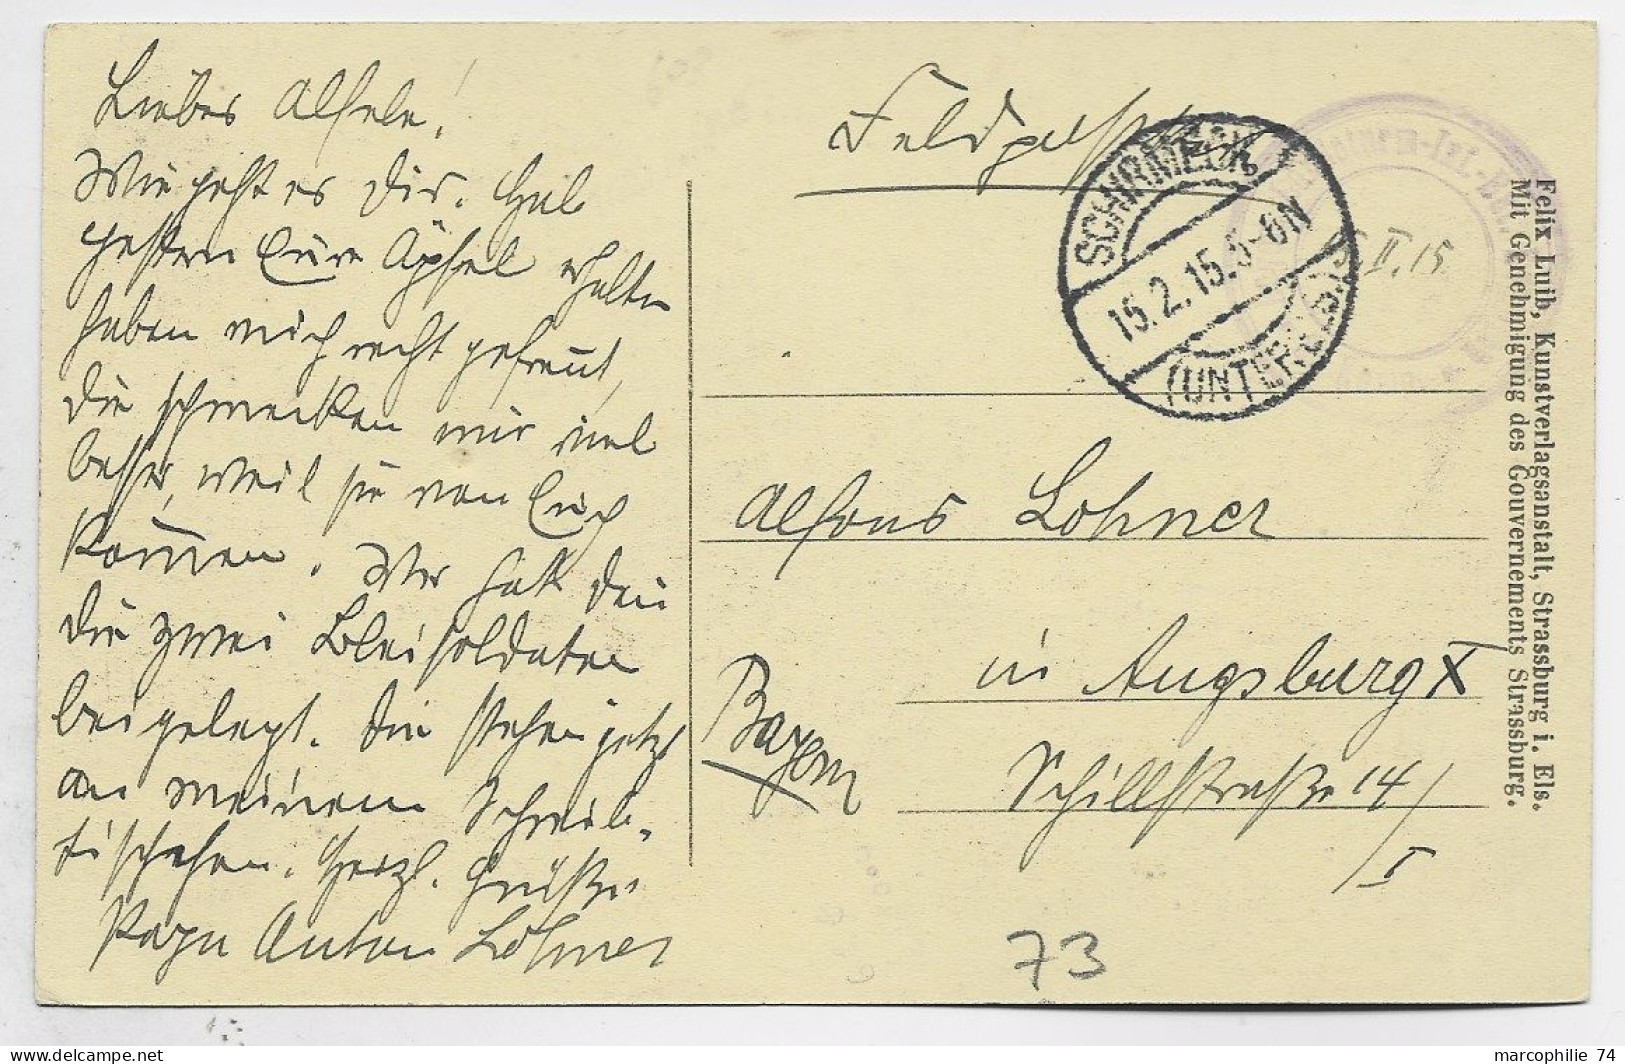 Liebes Alfele!
Wie geht es Dir. Hab
gestern Eure Äpfel erhalten
haben mich recht gefreut,
die schmecken mir viel
besser, weil sie von Euch
kom̄en. Wer hatt denn
die zwei Bleisoldaten
beigelegt. Die stehen jetzt
an meinem Schreib-
tischchen. Herzl. Grüße
Papa Anton Lohner
Feldpost
SCHIRMECK
15.2.15.5-6N
(UNTER-ELS.)
II. 15
Alfons Lohner
in Augsburg X
Bayern
Schillstraße 14/
/I
73
Felix Luib, Kunstverlagsanstalt, Strassburg i. Els.
Mit Genehmigung des Gouvernements Strassburg.
marcophilie 74